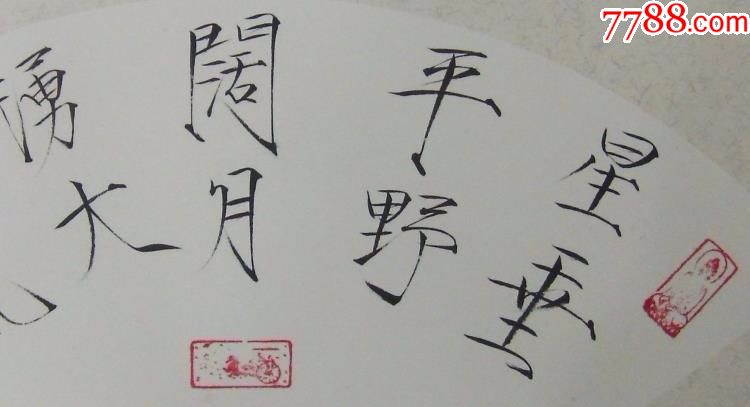 7788.com
星垂
平野
闊月
湧大